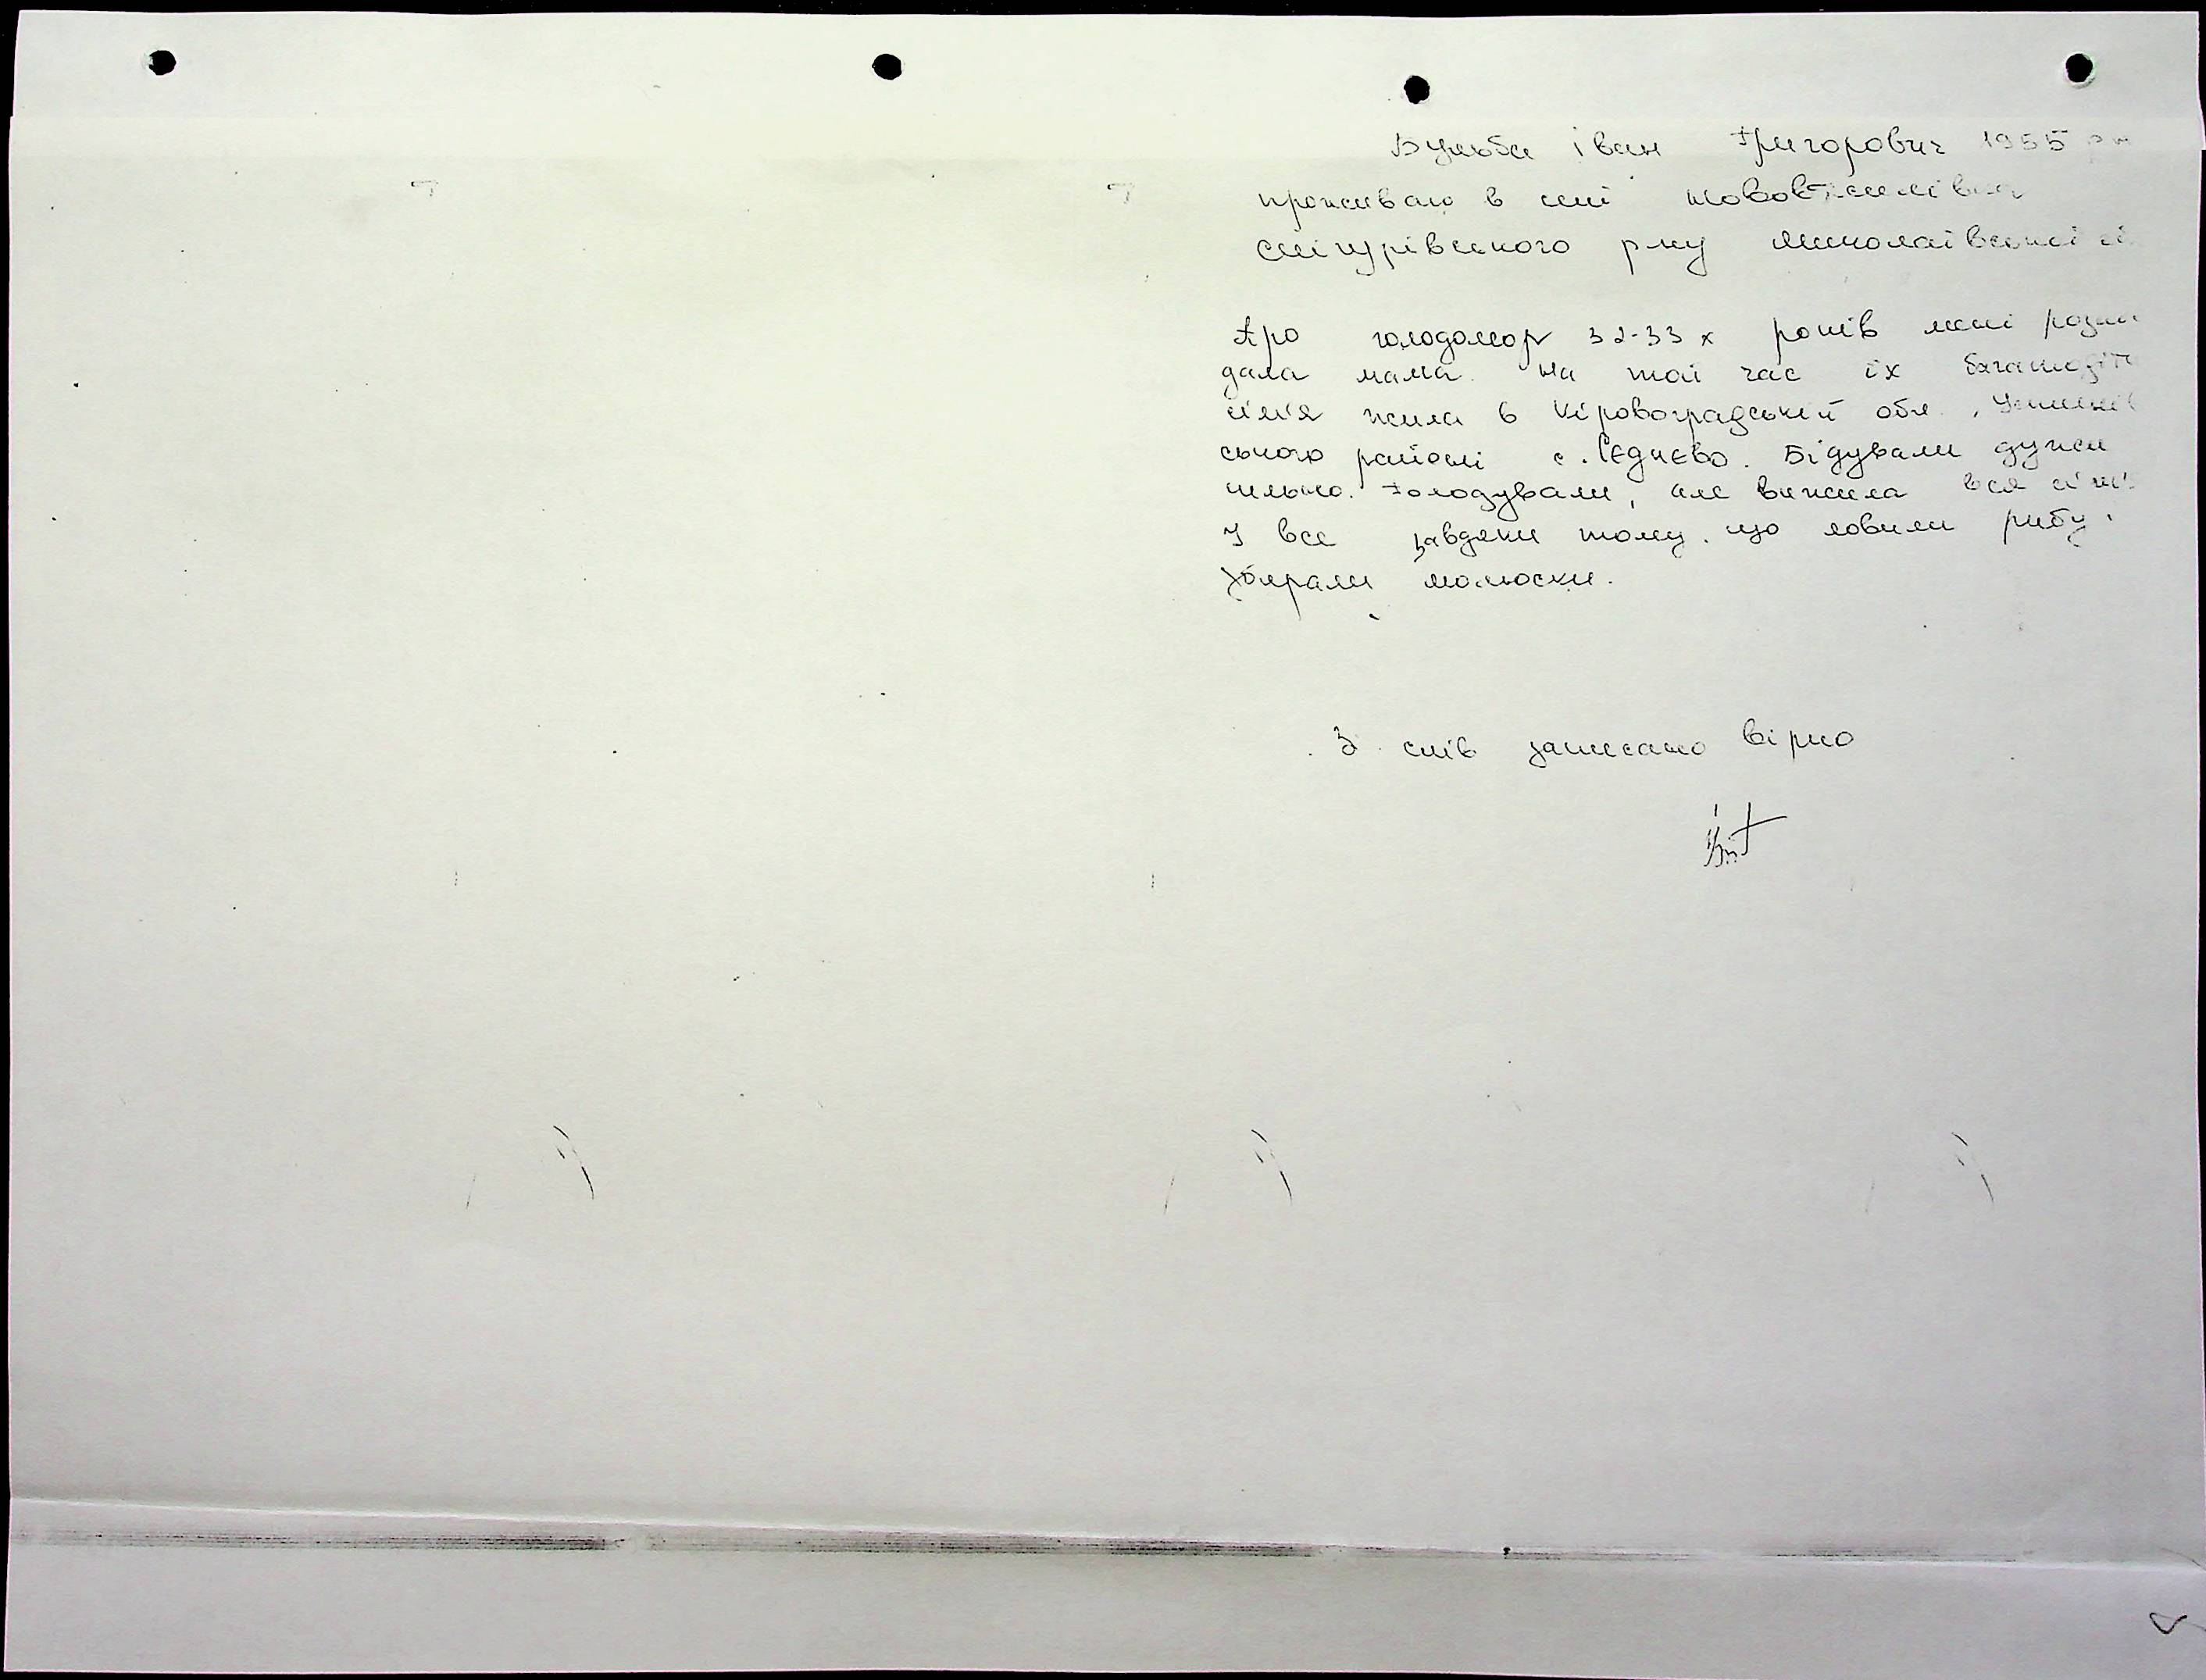 Бульба Іван Григорович 1955
проживаю в селі Нововасилівка
Снігурівського р-ну Миколаївської
Про голодомор 32-33 х років мені розпо
дала мама. На той час їх багатодіт
сім'я жила в Кіровоградській обл.,
ського районі с. Седнєво. Бідували дуже
сильно. Голодували, але вижила вся сім'
І все завдяки тому, що ловили рибу,
збирали молюски.
З слів записано вірно